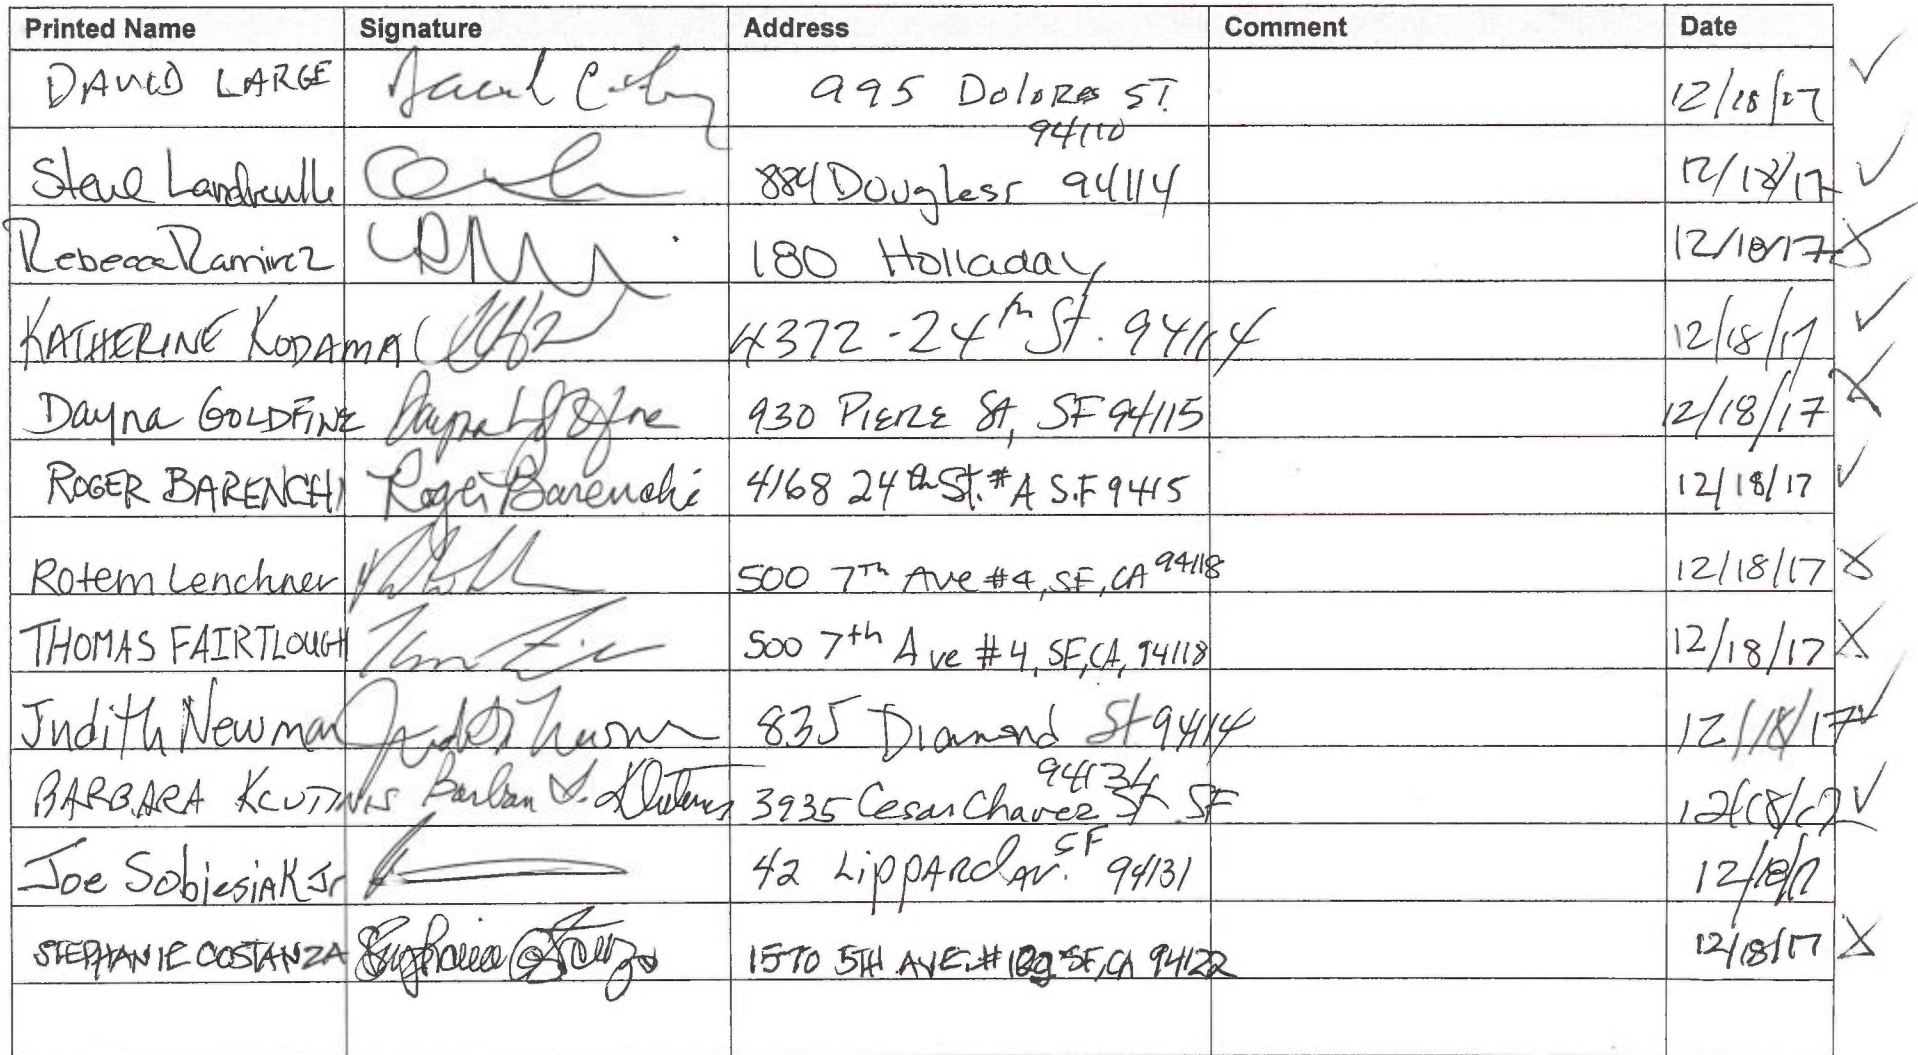 Printed Name Signature Address Comment Date
DAVID LARGE 995 Dolores ST. 12/18/17
94110
Steve 884 Douglass 94114 12/18/17
Rebecca Ramirez 180 Holladay 12/18/17
KATHERINE KODAMA 4372 - 24th St. 94114 12/18/17
Dayna GOLDFINE 930 PIERCE St, SF 94115 12/18/17
ROGER BARENCHI Roger Barenchi 4168 24th St. #A S.F 9415 12/18/17
Rotem Lenchner 500 7Th Ave #4, SF, CA 94118 12/18/17
THOMAS FAIRTLOUGH 500 7th Ave #4, SF, CA, 94118 12/18/17
Judith Newman 835 Diamond St 94114 12/18/17
BARBARA 3935 Cesar Chavez St SF 12/18/17
Joe Sobiesiak Jr 42 Lippard Av. SF 94131 12/18/17
STEPHANIE COSTANZA 1570 5TH AVE. SF, CA 94122 12/18/17